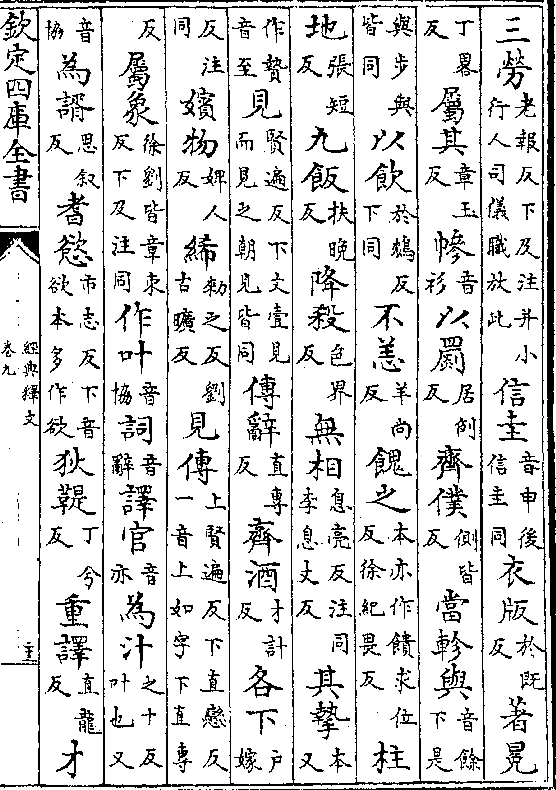 三勞老報反下及注并小行人司儀職放此信圭音申後信圭同衣版於既反著冕
丁畧反屬其章玉反幓音衫以罽居例反齊僕側皆反當軫與音餘下是
與步與皆同以飲於鴆反下同不恙羊尚反餽之本亦作饋求位反徐紀畏反柱
地張短反九飯扶晚反降殺色界反無相息亮反注同李息丈反其摯本又
作贄音至見賢遍反下文壹見而見之朝見皆同傳辭直專反齊酒才計反各下户嫁
反注同嬪物婢人反絺勑之反劉古曠反見傳上賢遍反下直戀反一音上如字下直專
反屬象徐劉皆章束反下及注同作叶音協詞音辭譯官音亦為汁之十反叶也又
音協為諝思叙反耆慾市志反下音欲本多作欲狄鞮丁今反重譯直龍反才
欽定四庫全書
經典釋文
卷九